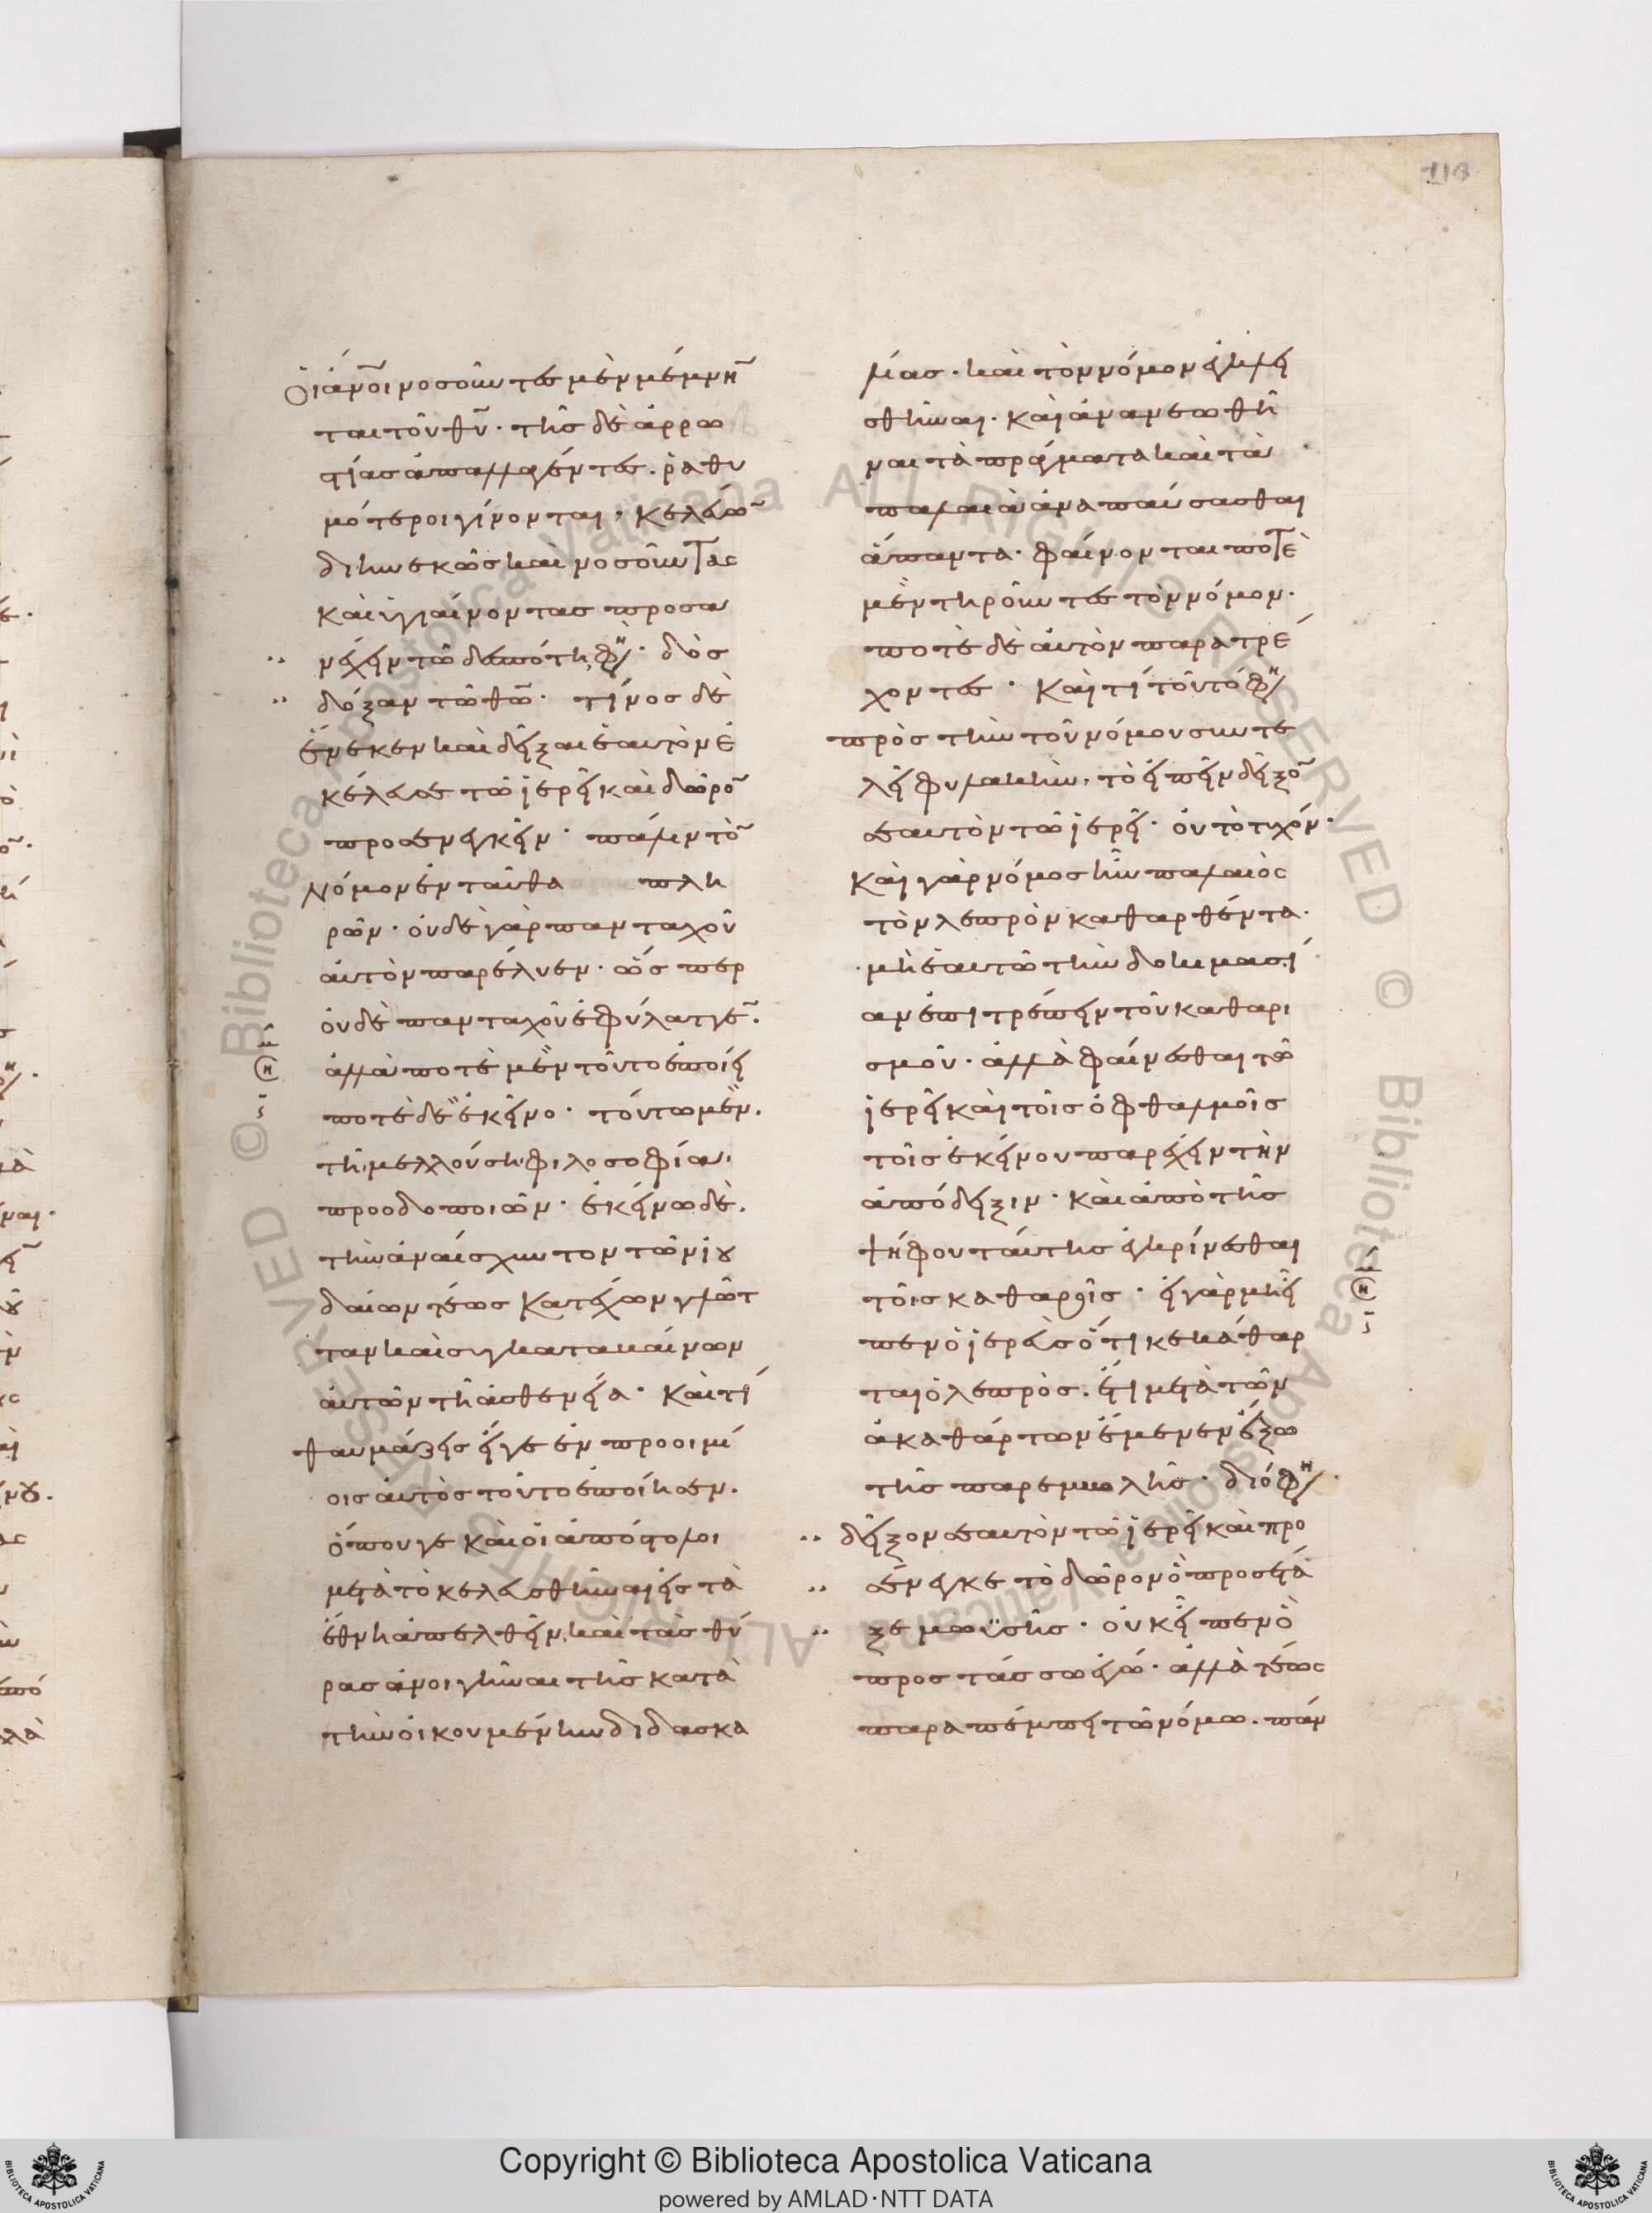 113
Οἱ ἄνοι νοσοῦντες μὲν μέμνη
ται τοῦ θυ· τῆς δὲ ἀρρω
στίας ἀπαλλαγέντες· ῥαθυ
μότεροι γίνονται, κελεύω
διηνεκῶς καὶ νοσοῦντας
καὶ ὑγιαίνοντας προσα
νέχειν τῷ δεσπότῃ, φη· δὸς
δόξαν τῷ θω· τίνος δὲ
ἕνεκεν καὶ δεῖξαι ἑαυτὸν ἐ
κέλευσε τῷ ἱερεῖ καὶ δῶρο
προσενεγκεῖν· πάλιν τὸ
Νόμον ἐνταῦθα πλη
ρῶν· οὐδὲ γὰρ πανταχοῦ
αὐτὸν παρέλυεν· ὥσπερ
οὐδὲ πανταχοῦ ἐφύλαττε·
ἀλλὰ ποτὲ μὲν τοῦτο ἐποίει
ποτὲ δὲ ἐκεῖνο· τούτω μὲν·
τῇ μελλούσῃ φιλοσοφίᾳ·
προοδοποιῶν· ἐκείνω δὲ·
τὴν ἀναίσχυντον τῶν ἰου
δαίων τέως κατέχων γλῶτ
ταν καὶ συγκαταβαίνων
αὐτῶν τῇ ἀσθενείᾳ· καὶ τί
θαυμάζεις εἴγε ἐν προοιμί
οις αὐτὸς τοῦτο ἐποίησεν·
ὅπου γε καὶ οἱ ἀπόστολοι
μετὰ τὸ κελευσθῆναι εἰς τὰ
ἔθνη ἀπελθεῖν, καὶ τὰς θύ
ρας ἀνοιγῆναι τῆς κατὰ
τὴν οἰκουμένην διδασκα
λίας· καὶ τὸν νόμον ἐκλει
σθῆναι· καὶ ἀνανεωθῆ
ναι τὰ πράγματα καὶ τὰ
παλαιὰ ἀναπαύσασθαι
ἅπαντα· φαίνονται ποτὲ
μὲν τηροῦντες τὸν νόμον·
ποτὲ δὲ αὐτὸν παρατρέ
χοντες· Καὶ τί τοῦτό φη
πρὸς τὴν τοῦ νόμου συντε
λεῖ φυλακὴν, τὸ εἰπεῖν δεῖξο
σεαυτὸν τῷ ἱερεῖ· οὐ τὸ τυχόν·
Καὶ γὰρ νόμος ἦν παλαιὸς
τὸν λεπρὸν καθαρθέντα·
μὴ ἑαυτῷ τὴν δοκιμασί
αν ἐπιτρέπειν τοῦ καθαρι
σμοῦ· ἀλλὰ φαίνεσθαι τῷ
ἱερεῖ καὶ τοῖς ὀφθαλμοῖς
τοῖς ἐκείνου παρέχειν τὴν
ἀπόδειξιν· καὶ ἀπὸ τῆς
ψήφου ταύτης ἐγκρίνεσθαι
τοῖς καθαροῖς· εἰ γὰρ μὴ εἶ
πεν ὁ ἱερεὺς ὅτι κεκάθαρ
ται ὁ λεπρὸς· ἔτι μετὰ τῶν
ἀκαθάρτων ἔμενεν ἔξω
τῆς παρεμβολῆς· διό φη·
δεῖξον σεαυτὸν τῷ ἱερεῖ καὶ προ
σένεγκε τὸ δῶρον ὃ προσέτα
ξε μωϋσῆς· οὐκ εἶπεν ὃ
προστάσσω ἐγώ· ἀλλὰ τέως
παραπέμπει τῷ νόμω· πάν
Copyright © Biblioteca Apostolica Vaticana
powered by AMLAD·NTT DATA